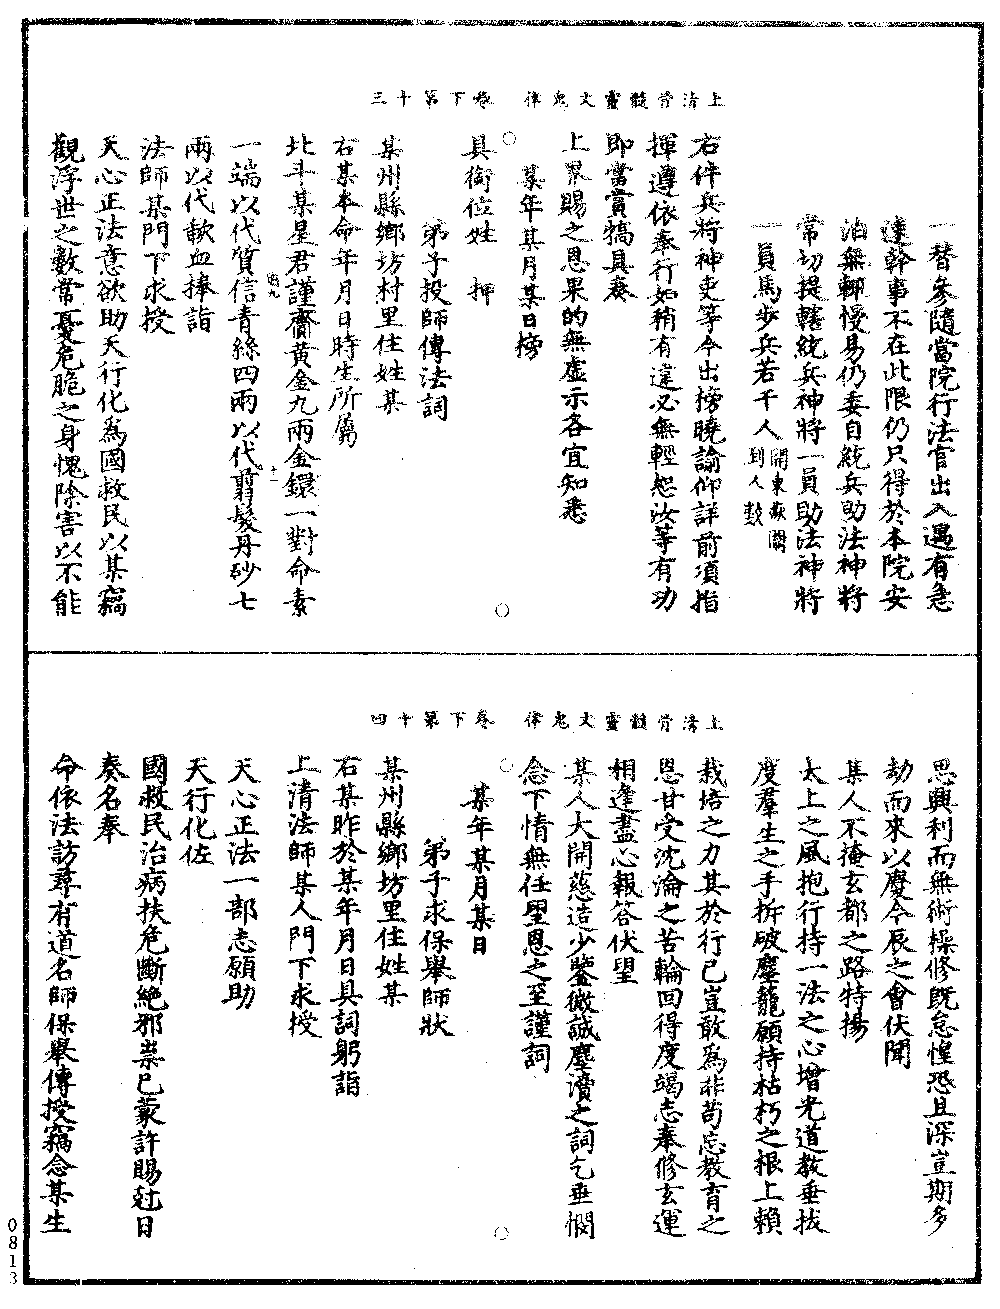 上清骨髓靈文鬼律　卷下第十三
一替參隨當院行法官出入遇有急
速幹事不在此限仍只得於本院安
泊無輙慢易仍委自統兵助法神將
常切提轄統兵神將一員助法神將
一員馬步兵若干人開東嶽關到人數
右件兵將神吏等今出榜曉諭仰詳前項指
揮遵依奉行如稍有違必無輕恕汝等有功
即當賞犒具奏
上界賜之恩果的無虛示各宜知悉
某年某月某日榜
具銜位姓　押
弟子投師傳法詞
某州縣鄉坊村里住姓某
右某本命年月日時生所屬
北斗某星君謹齎黃金九兩金鐶一對命素
一端以代質信青絲四兩以代翦髮丹砂七
兩以代歃血捧詣
法師某門下求授
天心正法意欲助天行化為國救民以某竊
觀浮世之數常憂危脆之身愧除害以不能
上清骨髓靈文鬼律　卷下第十四
思興利而無術操修既怠惶恐且深豈期多
劫而來以慶今辰之會伏聞
某人不掩玄都之路特揚
太上之風抱行持一法之心增光道教垂拔
度羣生之手拆破塵籠願持枯朽之根上賴
栽培之力其於行已豈敢為非苟忘教育之
恩甘受沈淪之苦輪回得度竭志奉修玄運
相逢盡心報答伏望
某人大開慈造少鑒微誠塵瀆之詞乞垂憫
念下情無任望恩之至謹詞
某年某月某日
弟子求保舉師狀
某州縣鄉坊里住姓某
右某昨於某年月日具詞躬詣
上清法師某人門下求授
天心正法一部志願助
天行化佐
國救民治病扶危斷絕邪祟已蒙許賜尅日
奏名奉
命依法訪尋有道名師保舉傳授竊念某生
0813